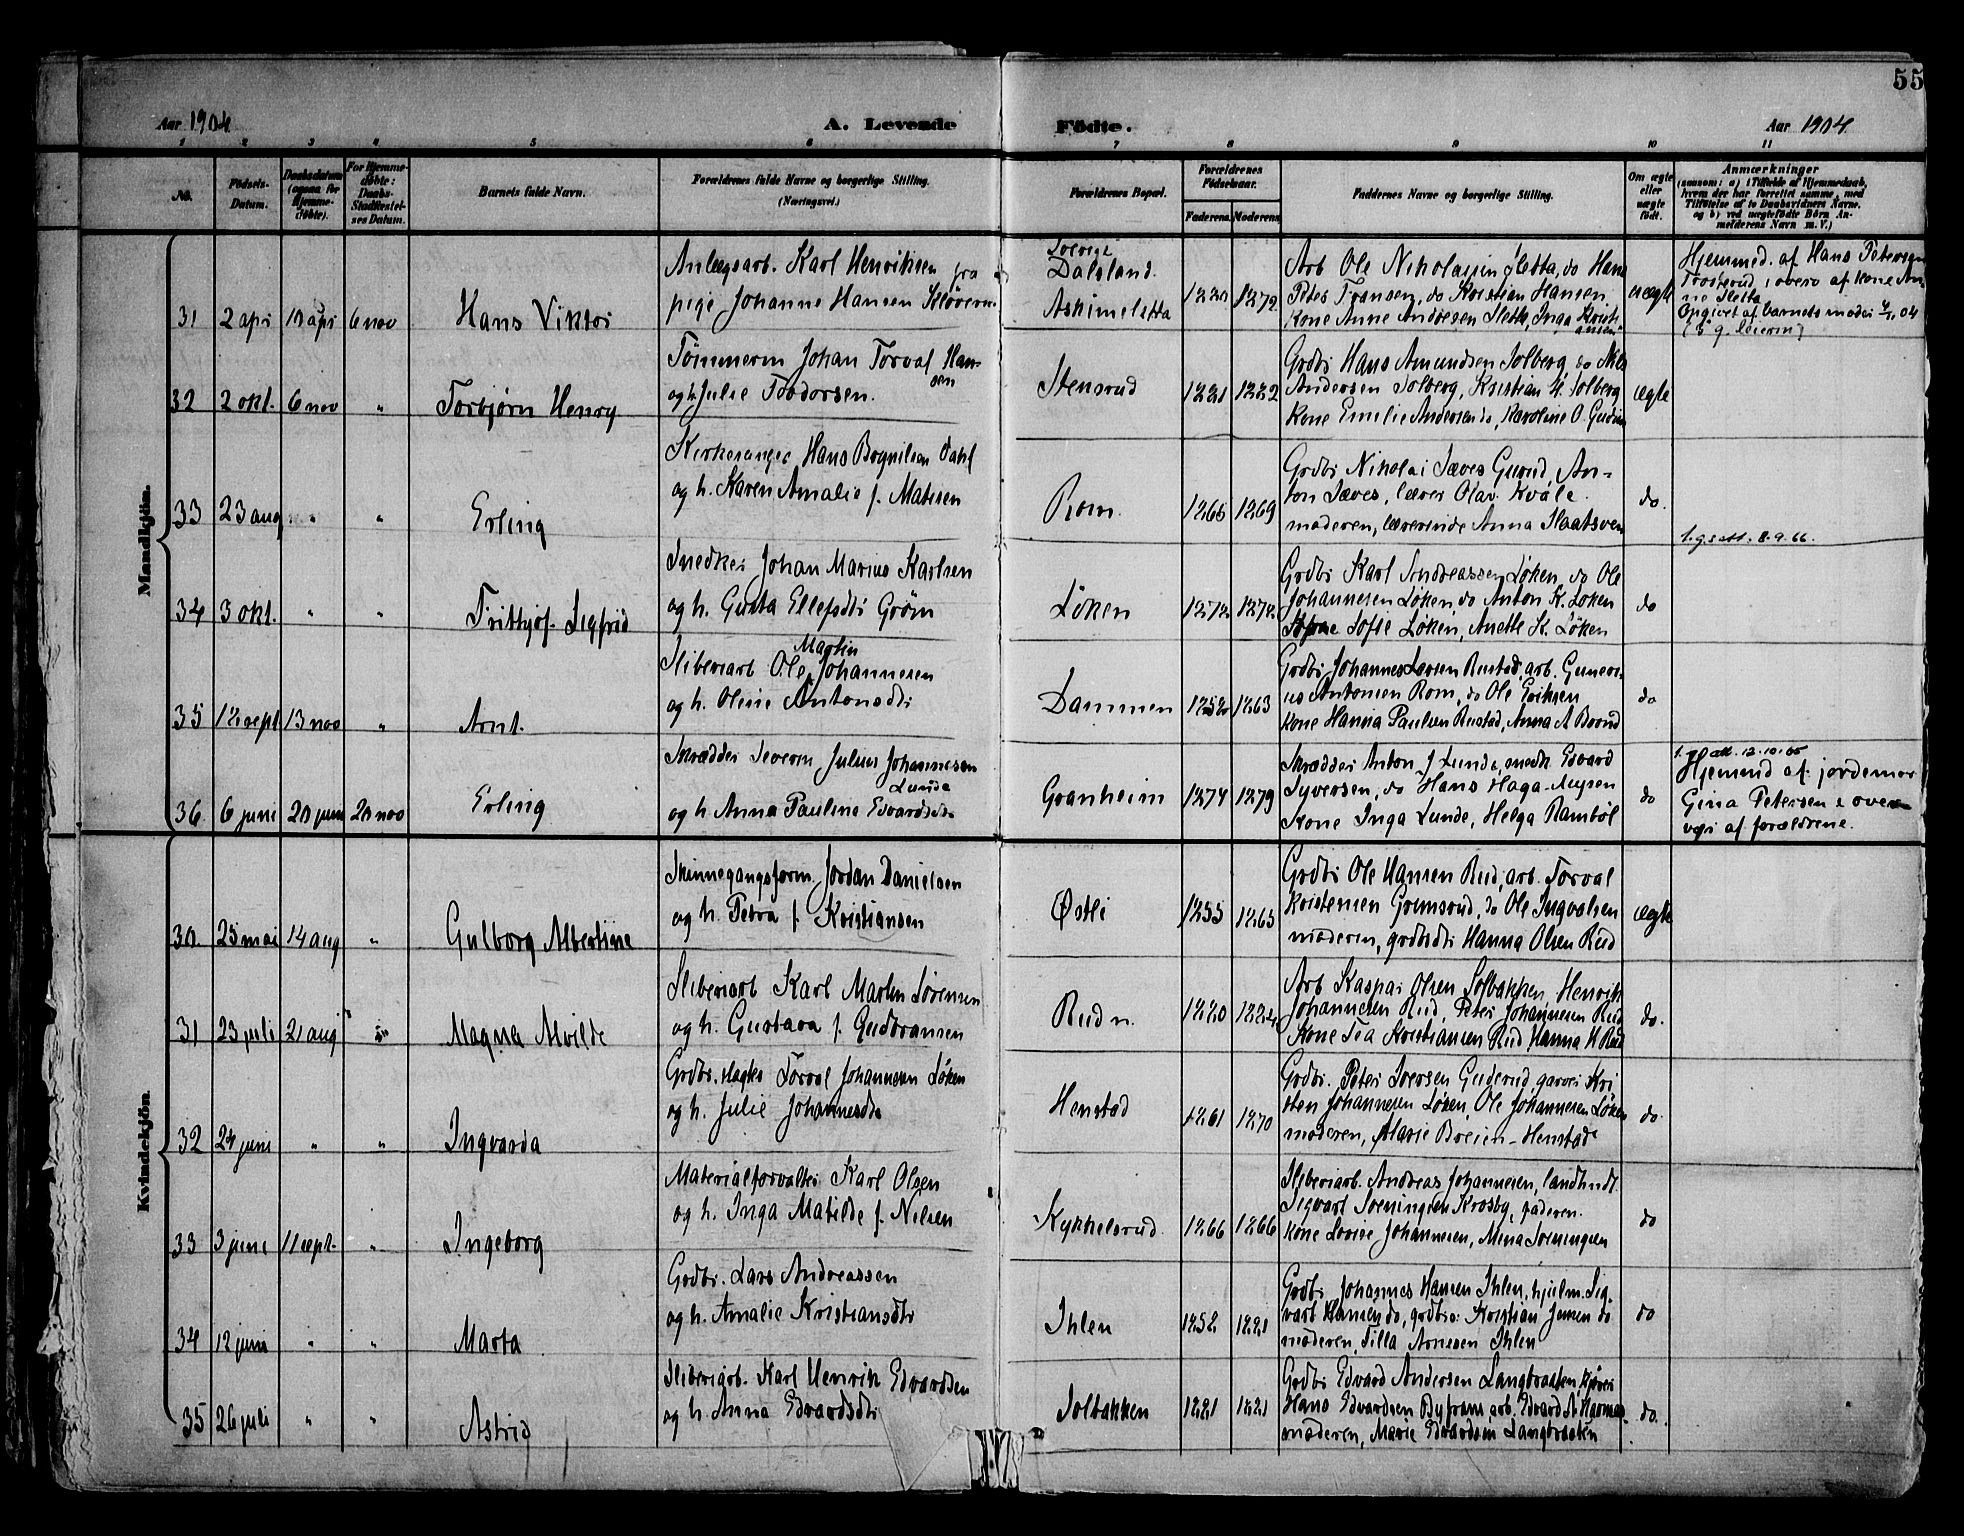 55
Aar 1904
A. Levende
Fødte.
Aar 1904.
1 2 3 4 5 6 7 8 9 10 11
No.
Fødsels-
Datum.
Daabsdatum
(ogsaa for
Hjemme-
døbte).
For Hjemme-
døbte:
Daabs-
Stadfæstel-
ses Datum.
Barnets fulde Navn.
Forældrenes fulde Navne og borgerlige Stilling.
(Næringsvei.)
Forældrenes Bopæl.
Forældrenes
Fødselsaar.
Faderens. Moderens.
Faddernes Navne og borgerlige Stilling.
Om ægte
eller
uægte
født.
Anmærkninger
(saasom: a) i Tilfælde af Hjemmedaab,
hvem der har forrettet samme, med
Tilføielse af to Daabsvidners Navne,
og b) ved uægtefødte Børn An-
melderens Navn m. V.)
Mandkjøn.
31 2 apr 10 apr 6 nov Hans Viktor
Anlægsarb. Karl Henriksen fra
pige Johanne Hansen
Sverige
Dalsland.
Askimsletta
1872 uægte
Arb Ole Nikolaisen Sletta, do Hans
Peter Fransen, do Kristian Hansen.
Kone Anne Andresen Sletta, Inga Kristi-
ansen
Hjemmed. af Hans Petersen
overv af kone An-
ne Sletta
Opgivet af barnets moder
32 2 okt. 6 nov " Torbjørn Henry
Tømmerm Johan Torval Han-
sen
og h. Julie Teodorsen.
Stensrud 1881 1882
Grdbr Hans Amundsen Solberg, do Nils
Andersen Solberg, Kristian H. Solberg
Kone Emilie Andersen do, Karoline O. Guderu
ægte
33 23 aug " " Erling
Kirkesanger Hans Bognilsen Dahl
og h. Karen Amalie f. Matisen
Rom. 1865 1869
Grdbr Nikolai Sæves Gurud, An-
ton Sæves, lærer Olav Kvåle.
moderen, lærerinde Anna Slaatsven
do.
f. g. att. 8.9.66.
34 3 okt. " " Fritthjof Sigfrid
Snedker Johan Marius Karlsen
og h. Gusta Ellefsdtr Grøm
Løken 1872 1872
Grdbr Karl Andreassen Løken, do Ole
Johannesen Løken, do Anton K. Løken
Sofie Løken, Anette K. Løken
do
35 12 sept 13 nov " Arnt.
Sliberiarb Ole Martin Johannesen
og h. Oline Antonsdtr
Dammen 1852 1863
Grdbr Johannes Larsen Rustad, arb. Guneri-
us Antonsen Rom, do Ole Eriksen
kone Hanna Paulsen Rustad, Anna A
do
36 6 juni 20 juni 20 nov Erling
Skrædder Severin Julius Johannesen
Lunde
og h. Anna Pauline Edvardsdtr
Granheim 1874 1879
Skrædder Anton J Lunde, snedk Edvard
Syversen, do Hans Haga-Mysen
Kone Inga Lunde, Helga Rambøl
do
f. g. att. 12.10.65
Hjemmed af jordemor
Gina Petersen i over-
vær af forældrene.
Kvindekjøn.
30. 25 mai 14 aug " Gulborg Albertine
Skinnegangsform. Jordan Danielsen
og h. Petra f. Kristiansen
Østli 1855 1865
Grdbr Ole Hansen Rud, arb. Torval
Kristensen Grimsrud, do Ole Ingvalsen
moderen, grdbdtr Hanna Olsen Rud
ægte
31 23 juli 21 aug " Magna Alvilde
Sliberiarb Karl Marten Sørensen
og h. Gustava f. Gudbransen
Rud n. 1880 1884
Arb Kaspar Olsen Solbakken, Henrik
Johannesen Rud, Peter Johannesen Rud
Kone Tea Kristiansen Rud, Hanna K Rud
do.
32 24 juni " " Ingvarda
Grdbr. Torval Johannesen Løken
og h. Julie Johannesdtr
Henstad 1861 1870
Grdbr. Peter Iversen Guderud, garver Kri-
sten Johannesen Løken, Ole Johannesen Løken
moderen, Marie Breien-Henstad
do
33 3 juni 11 sept. " Ingeborg
Materialforvalter Karl Olsen
og h. Inga Matilde f. Nilsen
Kykkelsrud 1866 1866
Sliberiarb. Andreas Johannesen, landhndl.
Sigvart Sveningsen Krosby, faderen.
kone Lovise Johannesen, Mina Sveningsen
do
34 12 juni " " Marta
Grdbr. Lars Andreassen
og h. Amalie Kristiansdtr
Ihlen 1852 1881
Grdbr Johannes Hansen Ihlen, hjulm. Sig-
vart Hansen do, grdbsø: Kristian Jensen do
moderen, Tilla Arnesen Ihlen
do
35 26 juli " " Astrid
Sliberiarb. Karl Henrik Edvardsen
og h. Anna Edvardsdtr
Solbakken 1881 1881
Grdbr Edvard Andersen Langbraaten, kjører
Hans Edvardsen Byfram, arb. Edvard
moderen, Marie Edvardsen Langbraaten
do.